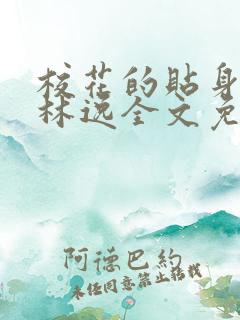 校花的贴身
林逸全文免
阿德巴約
未经同意禁止搭载